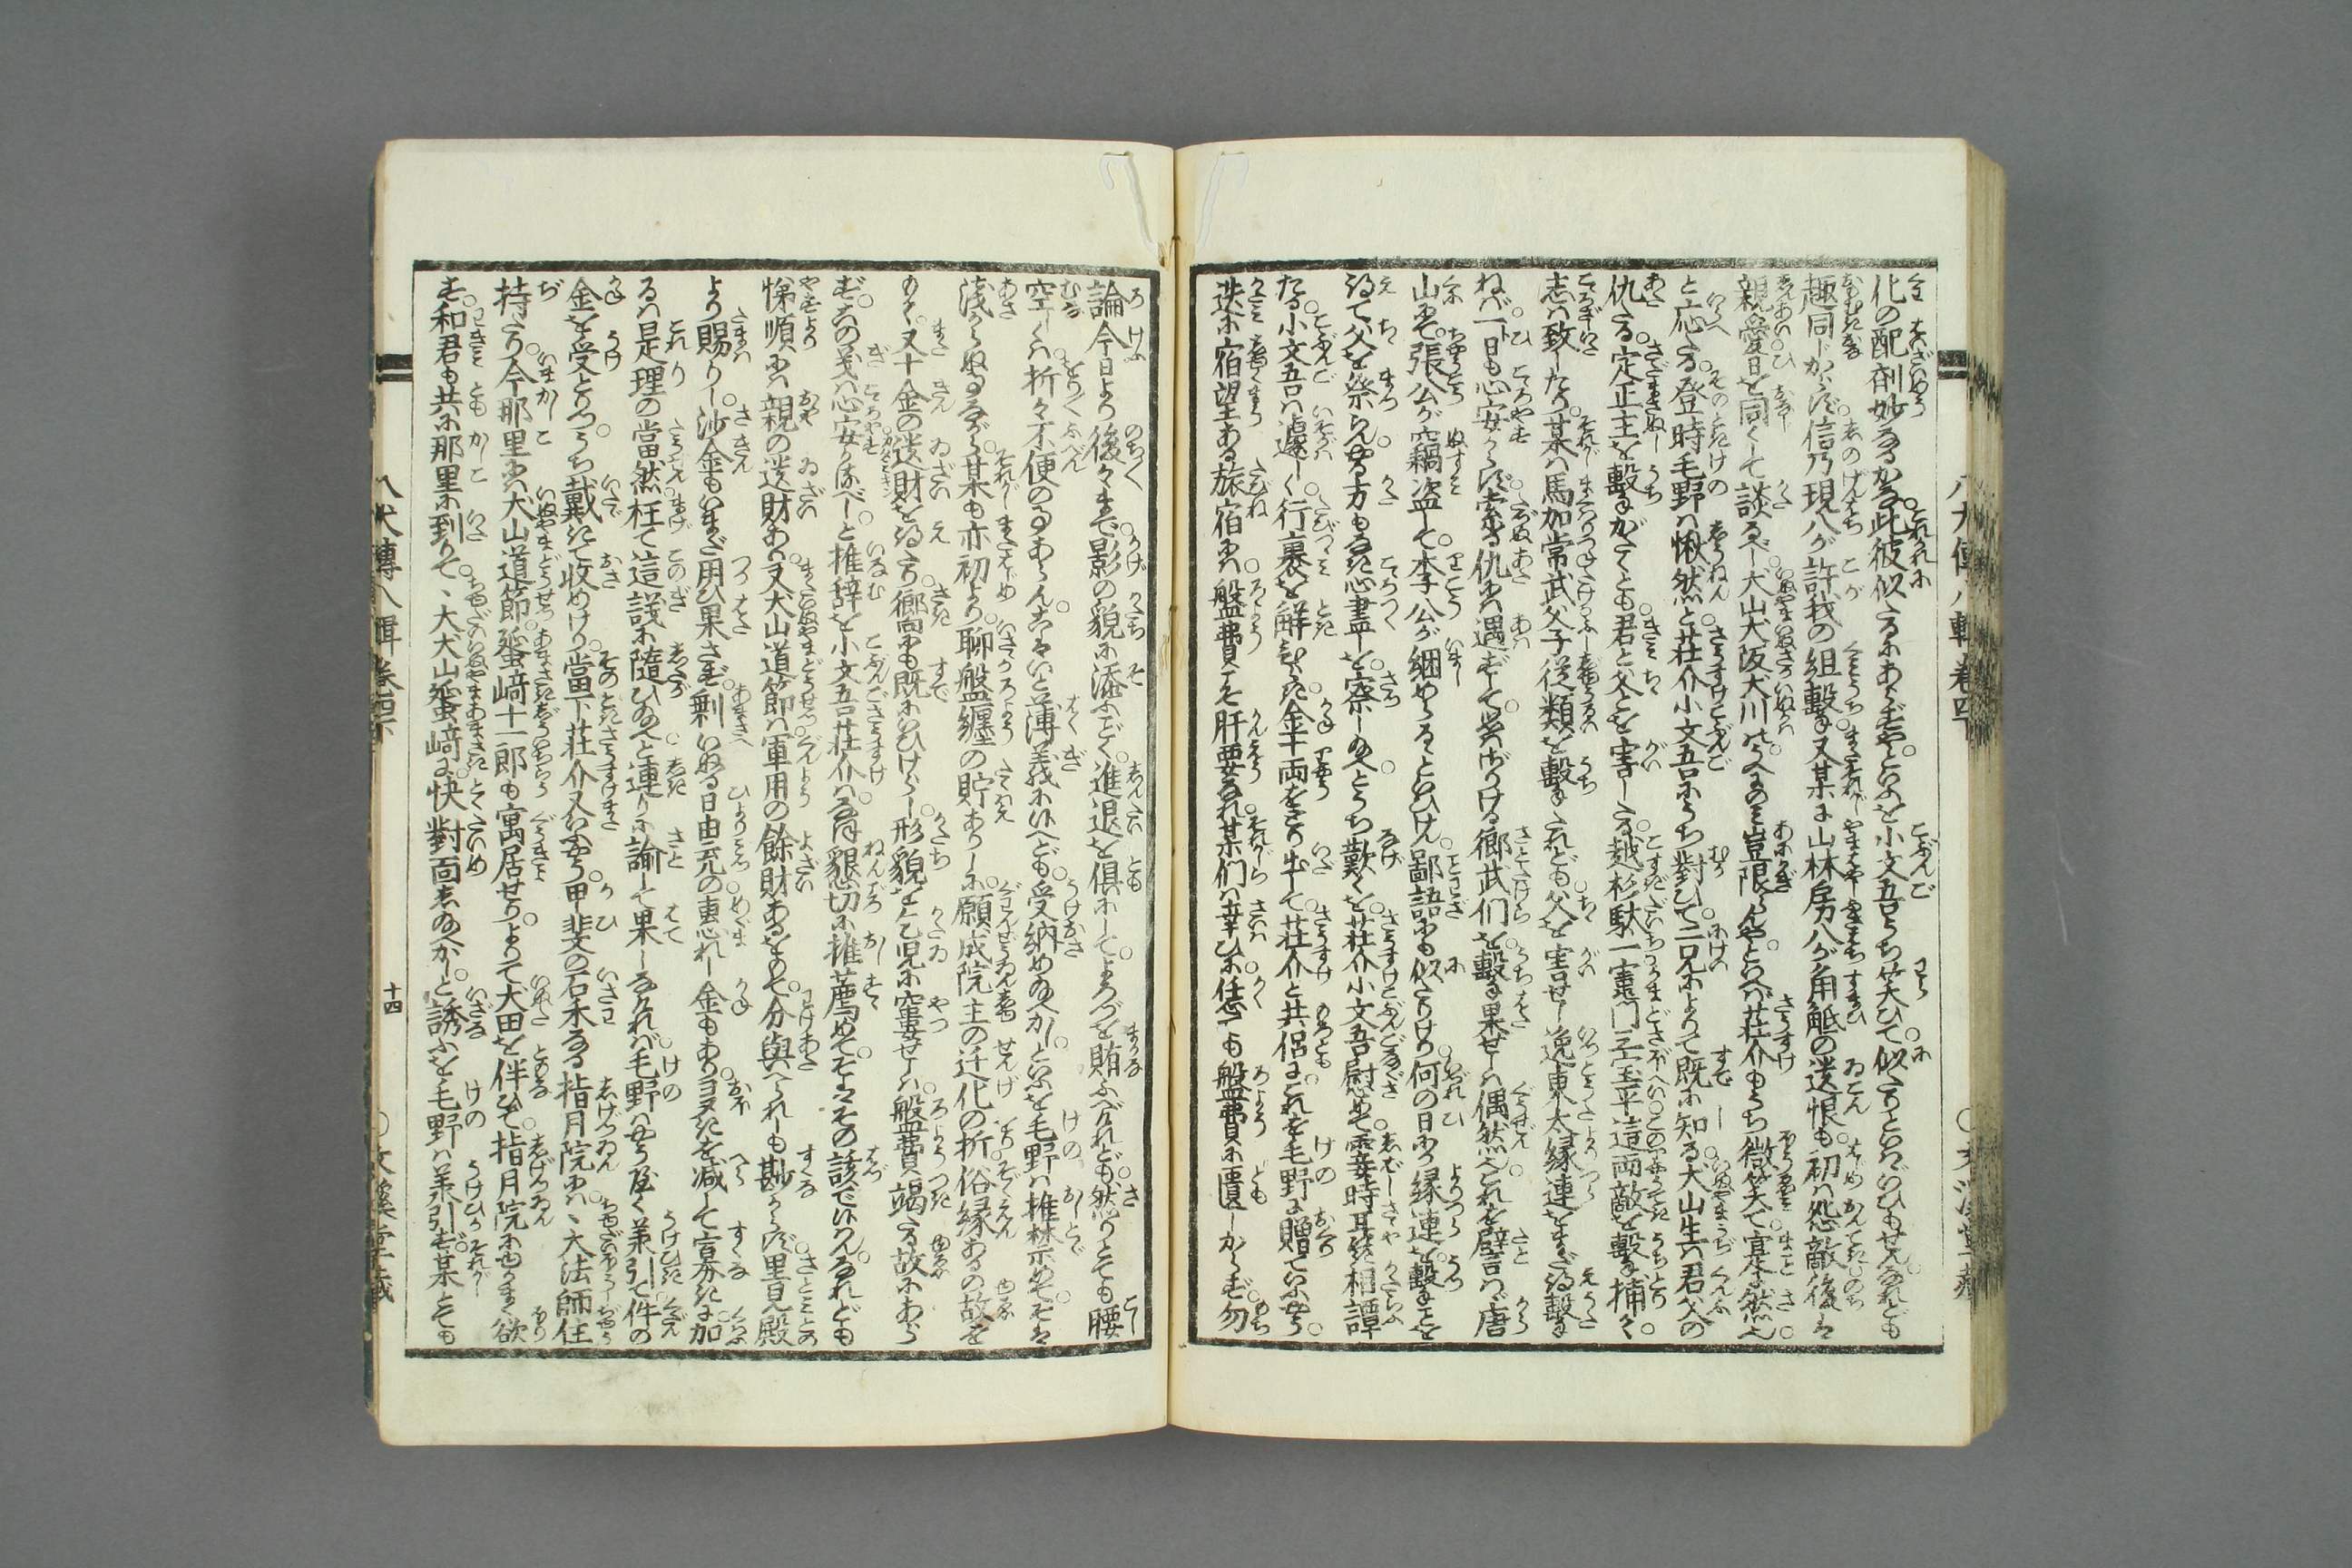 化の配剤妙なるかな此彼似たるにあらずやといふを小文吾うち笑ひて似たりといはゞいひもせんなれども
趣同じからず信乃現八が許我の組撃又某と山林房八が角觝の遺恨も初は怨敵後は
親愛日を同くして談るべし犬山犬阪犬川のうへのみ豈限らんやといへば荘介もうち微笑て寔に然也
と応たる登時毛野は愀然と荘介小文吾にうち對ひて二兄によりて既に知る犬山生は君父の
仇たる定正主を撃まがくとも君と父とを害したる越杉駄一竈門三宝平這両敵を撃捕て
志は致したり某は馬加常武父子従類を撃たれども父を害せし逸東太縁連をまだ得撃
ねば一日も心安からず索る仇には遇ずして思はざりける郷武們を撃果せしは偶然也これを譬言はゞ唐
山にて張公が竊盗して李公が綑めらるといひけん鄙語にも似たりけり何の日にか縁連を撃ことを
得て父を祭らんせる方もなき心盡しを察し給へとうち歎くを荘介小文吾慰めて霎時耳談相譚
たる小文吾は遽しく行裹を解ひらき金十両をとり出して荘介と共侶にこれを毛野に贈ていふやう
迭に宿望ある旅宿には盤費こそ肝要なれ某們は幸ひに任意も盤費に匱しからず勿
論今日より後々まで影の貌に添ふごとく進退を倶にしてよろづを賄ふべけれども然りとても腰
空しくは折々不便の事あらんこはいと薄義に侍へども受納め給へかしといふを毛野は推禁めてそは
淺からぬ事ながら某も亦初より聊盤纏の貯ありしに願成院主の迁化の折俗縁あるの故を
もて又十金の遺財を得たり郷にも既にいひけらし形貌を乞児に窶せしは盤費竭たる故にあら
ずこの義は心安かるべしと推辞を小文吾荘介は尚懇切に推薦めてそはその該で侍らんなれども
悌順には親の遺財あり又犬山道節は軍用の餘財あるをもて分與へられしも尠からず里見殿
より賜りし沙金もいまだ用ひ果さず剰いぬる日由充の恵れし金もあり多きを減して寡きに加
るは是理の當然枉て這議に隨ひ給へと連りに諭して果しなければ毛野はやうやく承引て件の
金を受とりつゝうち戴きて收めけり當下荘介又いふやう甲斐の石禾なる指月院には、大法師住
持たり今那里には犬山道節蜑嵜十一郎も寓居せりよりて犬田を伴ひて指月院にまからまく欲
す和君も共に那里に到りて、大犬山蜑嵜に快對面し給へかしと誘ふを毛野は承引ず某とても
八犬傳八輯巻四下
十四